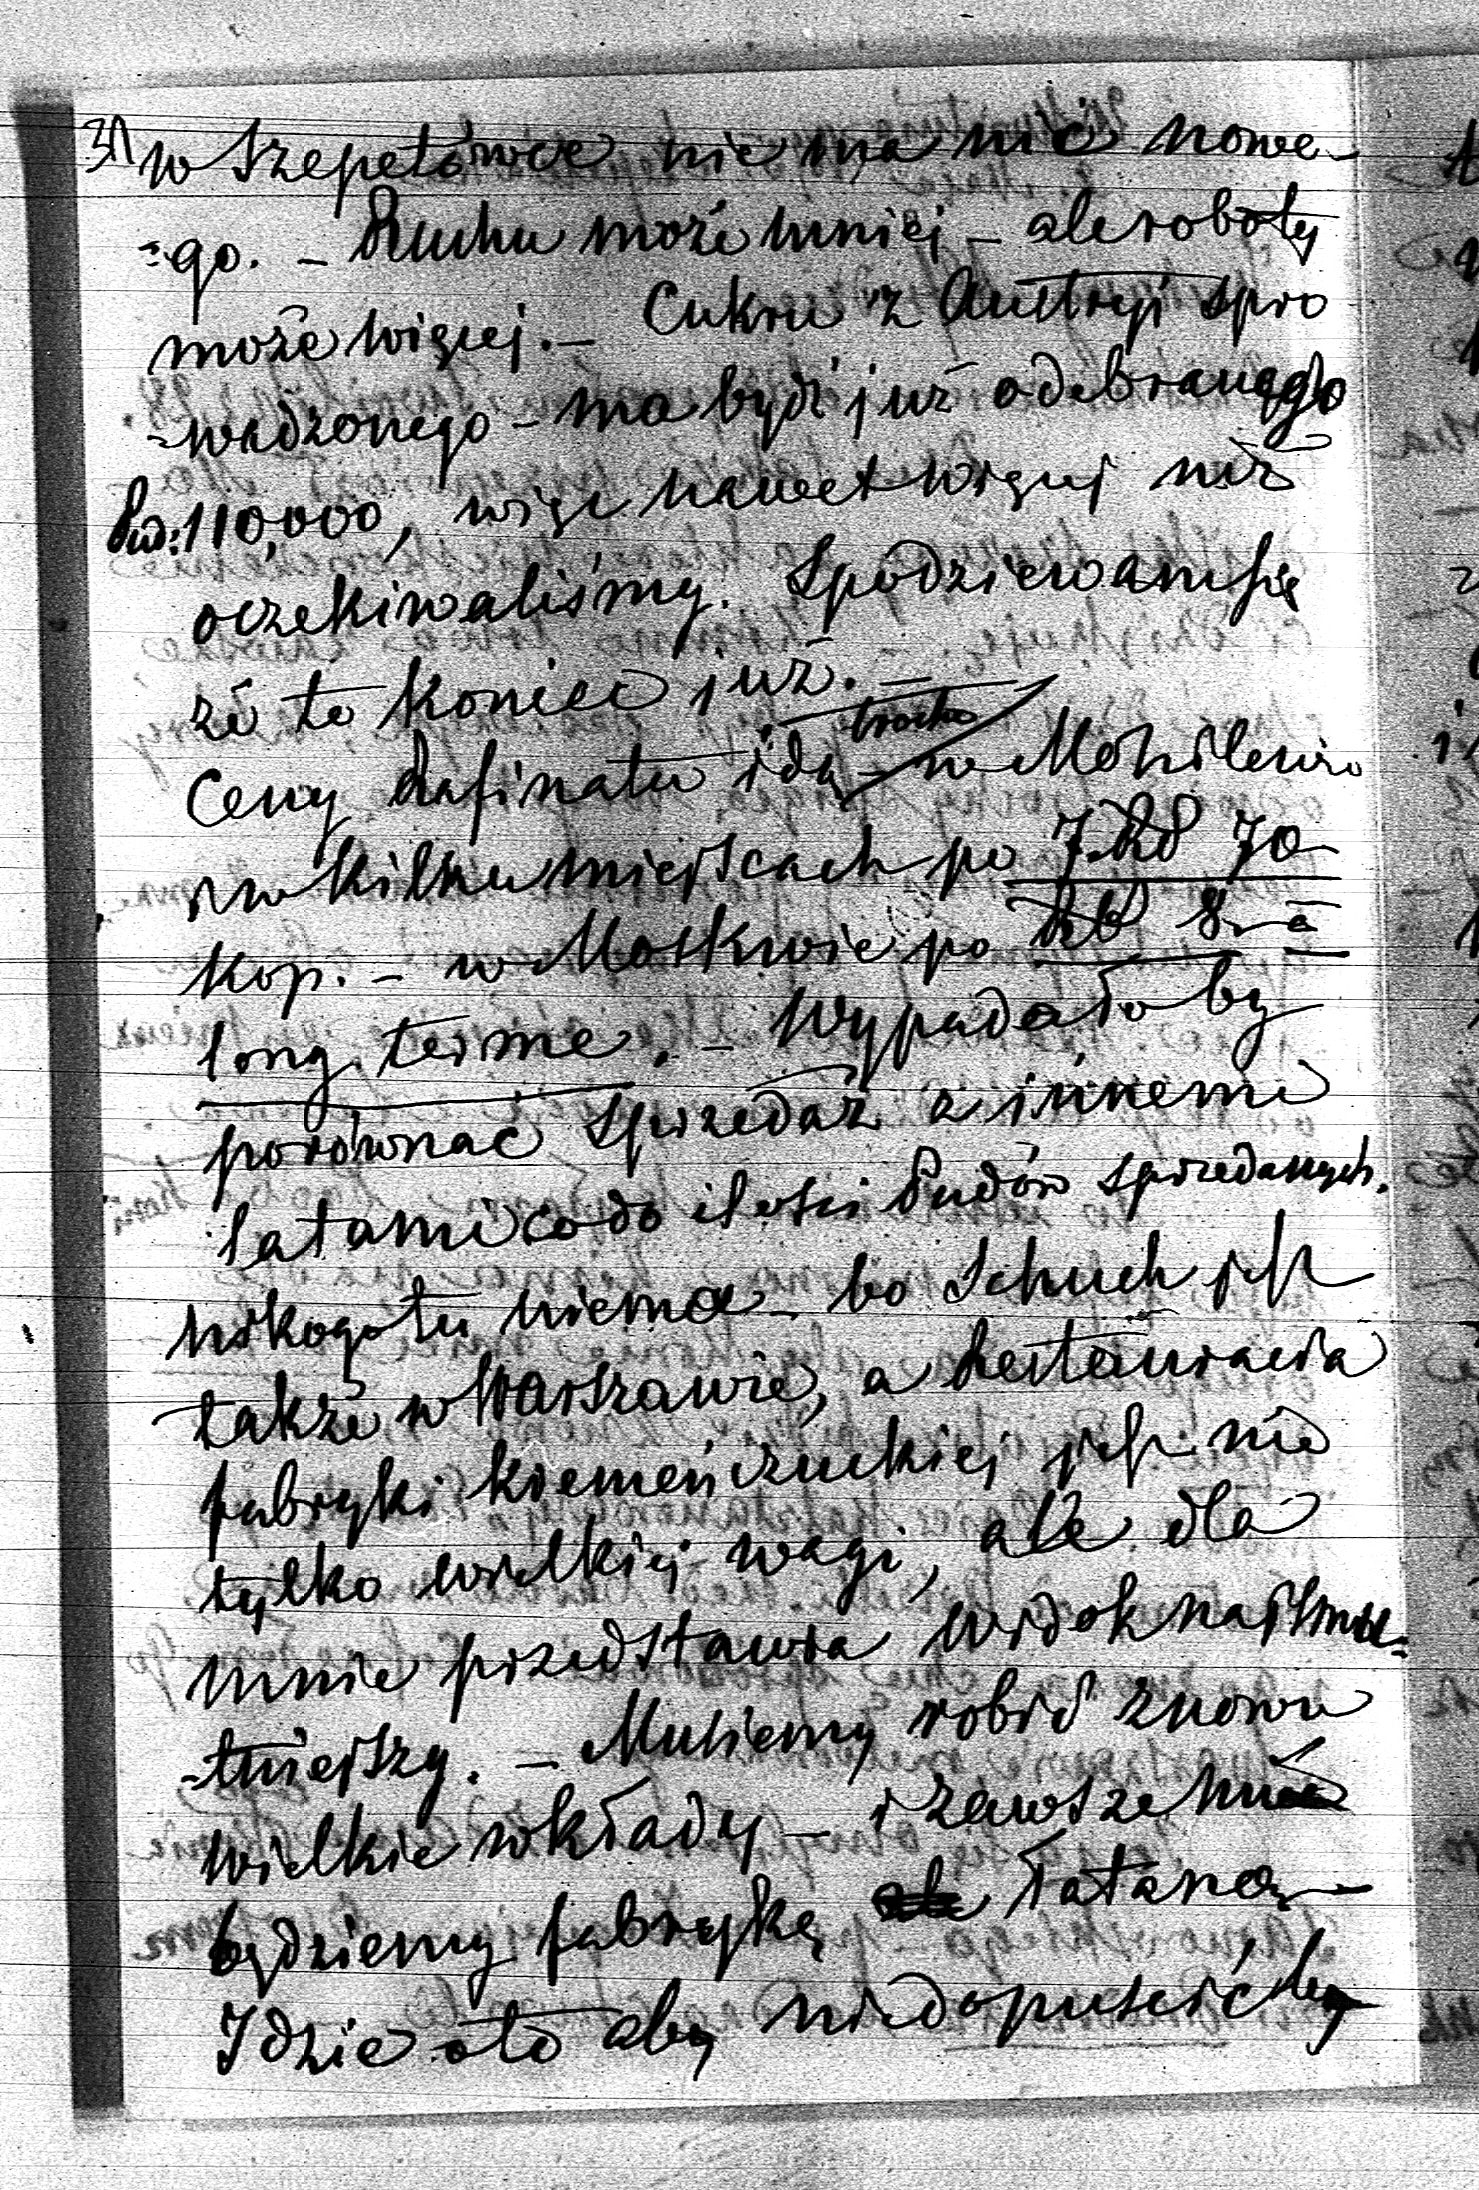 w Szepetówce nie ma nic nowe-
=go. - Ruchu może mniej - ale roboty
może więcej. - Cukru z Austryi spro
-wadzonego - ma być już odebranego
Pud: 110,000, więc nawet więcej niż
oczekiwaliśmy. Spodziewam się
że to koniec już. -
trocha
Ceny Rafinatu idą - w Mohilewie
i w kilku miejscach po 7 Rb 70
kop. - w Moskwie po Rb 8 - à
long terme. - Wypadało by
porównać sprzedaż z innemi
latami co do ilości Pudów sprzedanych.
Nikogo tu niema - bo Schuch jest
także w Warszawie, a Restauracia
fabryki kremeńczuckiej jest nie
tylko wielkiej wagi, ale dla
mnie przedstawia widok najsmu=
-tniejszy. - Musiemy robić znowu
wielkie wkłady - i zawsze
będziemy fabrykę łataną -
Idzie o to aby niedopuścić by